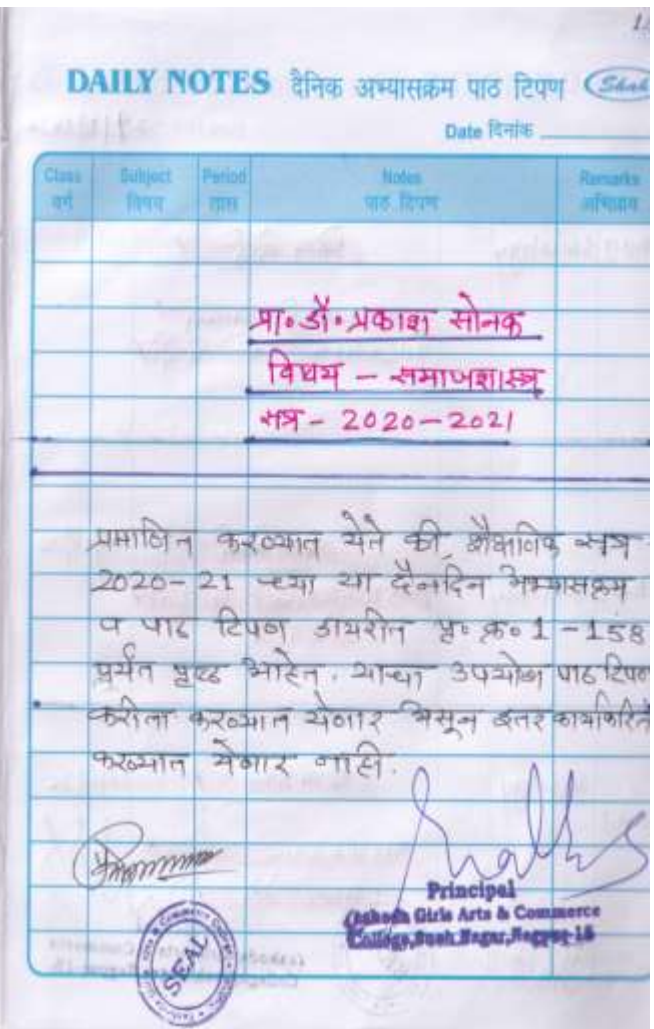 DAILY NOTES दैनिक अभ्यासक्रम पाठ टिपण
Date दिनांक
Class Subject Period Notes Remarks
वर्ग विषय तास पाठ टिपण अभिप्राय
प्रा. डॉ. प्रकाश सोनक
विषय - समाजशास्त्र
सत्र - 2020-2021
प्रमाणित करण्यात येते की, शैक्षणिक सत्र
2020-21 च्या या दैनंदिन अभ्यासक्रम
व पाठ टिपण डायरीत पृ. क्र. 1 - 158
पर्यंत पृष्ठ आहेत. याचा उपयोग पाठ टिपण
करीता करण्यात येणार असून इतर कार्याकरिता
करण्यात येणार नाही.
Principal
Girls Arts & Commerce
College, Nagar, Nagpur-18
SEAL